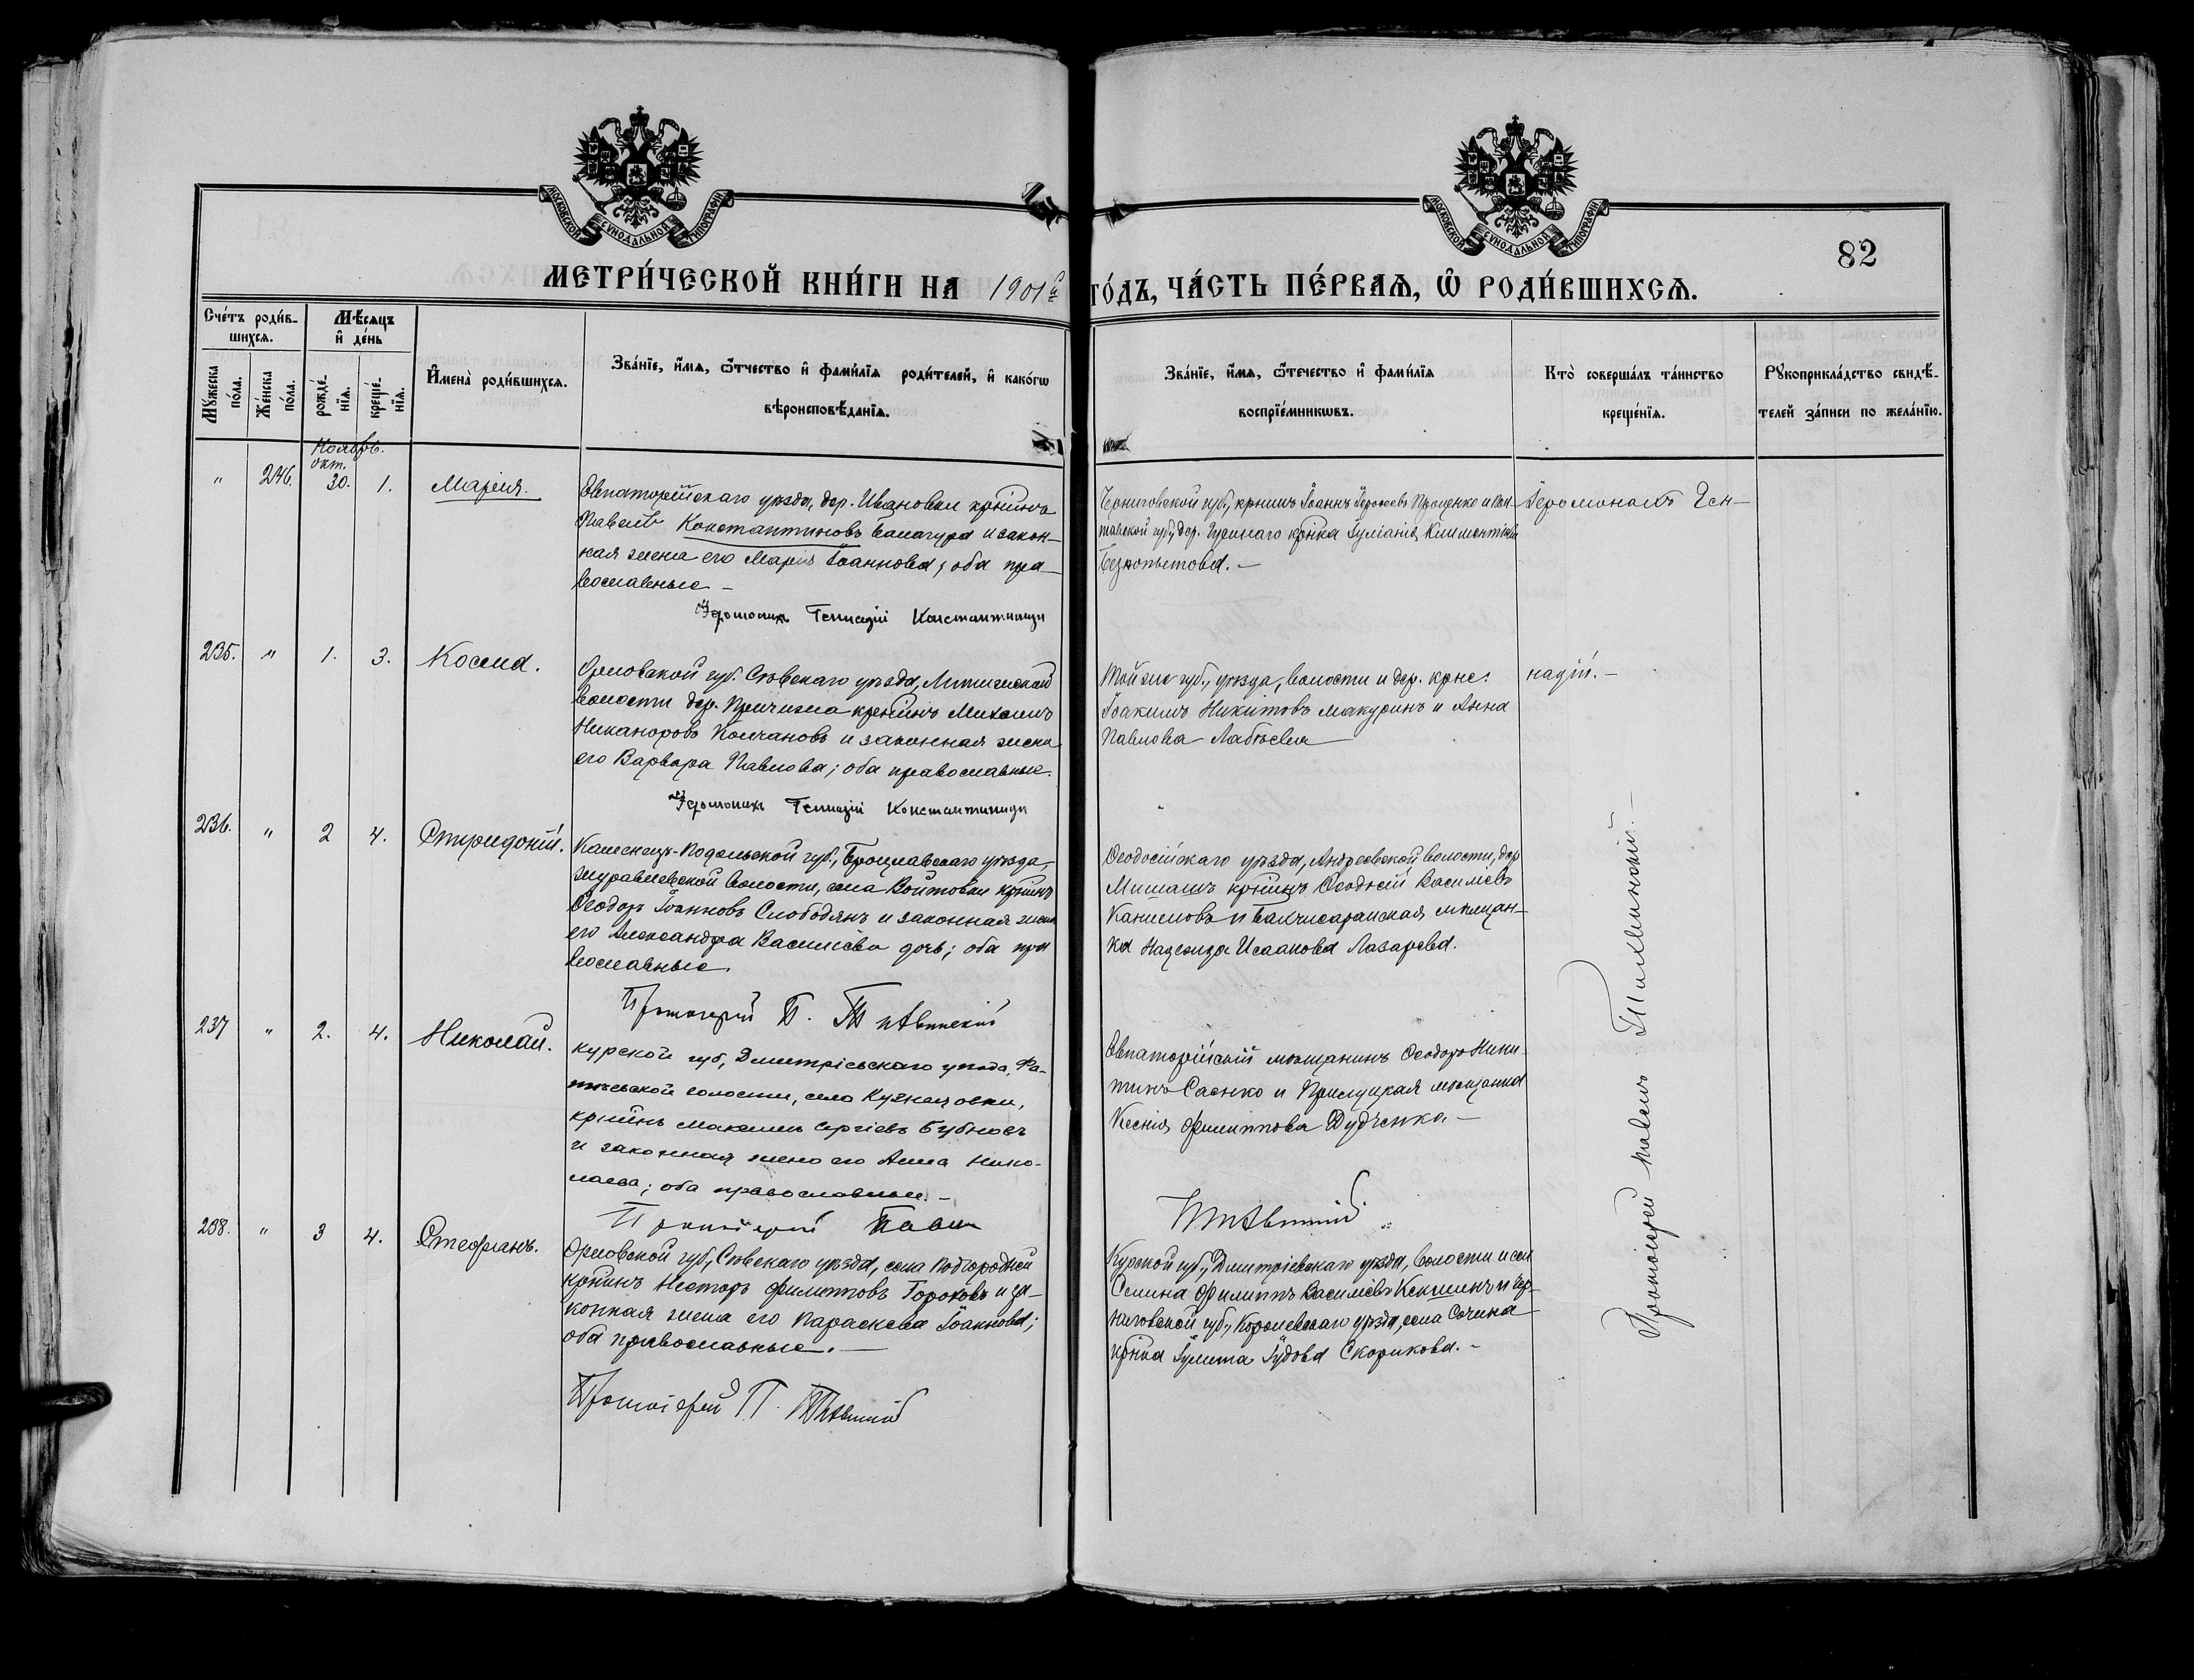 МОСКОВСКОЙ СУНОДАЛЬНОЙ ТИПОГРАФІИ
МОСКОВСКОЙ СУНОДАЛЬНОЙ ТИПОГРАФІИ
82
МЕТРИ́ЧЕСКОЙ КНИ́ГИ НА 1901й
ГО́ДЪ, ЧА́СТЬ ПЕ́РВАѦ, Ѽ РОДИ́ВШИХСѦ.
Сче́тъ роди́в-
шихсѧ.
Мꙋжеска по́ла.
Же́нска по́ла.
Мѣ́сѧцъ
и҆ де́нь
рожде́-
нїѧ.
креще́-
нїѧ.
И҆мена̀ роди́вшихсѧ.
Зва́нїе, и҆́мѧ, ѻ҆́тчество и҆ фами́лїѧ роди́телей, и҆ како́гѡ
вѣроисповѣ́данїѧ.
Зва́нїе, и҆́мѧ, ѻ҆те́чество и҆ фами́лїѧ
воспрїе́мникѡвъ.
Кто̀ соверша́лъ та́инство
креще́нїѧ.
Рꙋкоприкла́дство свидѣ́-
телей за́писи по жела́нїю.
Ноябрь.
окт.
" 246. 30. 1. Марія.
Евпаторійскаго уѣзда, дер. Ивановки крнинъ
Павелъ Константиновъ Балагура и закон-
ная жена его Марія Іоаннова; оба пра-
вославные –
Іеромонахъ Геннадій Константиниди
Черниговской губ., крнинъ Іоаннъ Проценко и Пол-
тавской губ., дер. крнка Іуліанія Климентьева
Безкопытова. –
Іеромонахъ Ген-
235. " 1. 3. Косма.
Орловской губ. Сѣвскаго уѣзда,
волости дер. крнинъ Михаилъ
Никаноровъ Колчановъ и законная жена
его Варвара Павлова; оба православные.
Іеромонахъ Геннадій Константиниди
Той же губ., уѣзда, волости и дер. крне:
Іоакимъ Никитовъ Макуринъ и Анна
Павлова
надій. –
236. " 2 4. Спиридоній.
Каменецъ-Подольской губ., Брацлавскаго уѣзда,
Журавлевской волости, села Войтовки крнинъ
Ѳеодоръ Іоанновъ Слободянъ и законная жена
его Александра Василіева дочь; оба пра
вославные.
Протоіерей П. Тихвинскій
Ѳеодосійскаго уѣзда, Андреевской волости, дер
крнинъ Ѳеодосій Василіевъ
и Бахчисарайская мѣщан-
ка Надежда Исаакова Лазарева.
237 " 2. 4. Николай.
Курской губ., Дмитріевскаго уѣзда, Фа-
тѣевской волости, села Кузнецовки,
крнинъ Максимъ Сергіевъ Бубновъ
и законная жена его Анна Нико-
лаева; оба православные. –
Протоіерей Павелъ
Тихвинскій
Евпаторійскій мѣщанинъ Ѳеодоръ Ники-
тинъ Саенко и Прилуцкая мѣщанка
Ксенія Филиппова Дудченко –
238. " 3 4. Стефанъ.
Орловской губ., Сѣвскаго уѣзда, села Подгородней
крнинъ Несторъ Филипповъ Гороховъ и за-
конная жена его Параскева Іоаннова;
оба православные. –
Протоіерей П. Тихвинскій
Курской губ., Дмитріевскаго уѣзда, волости и села
Селина Филиппъ Василіевъ Кекшинъ и Чер-
ниговской губ., уѣзда, села
крнка Іулита Іудова Скорикова. –
Протоіерей Павелъ Тихвинскій. –